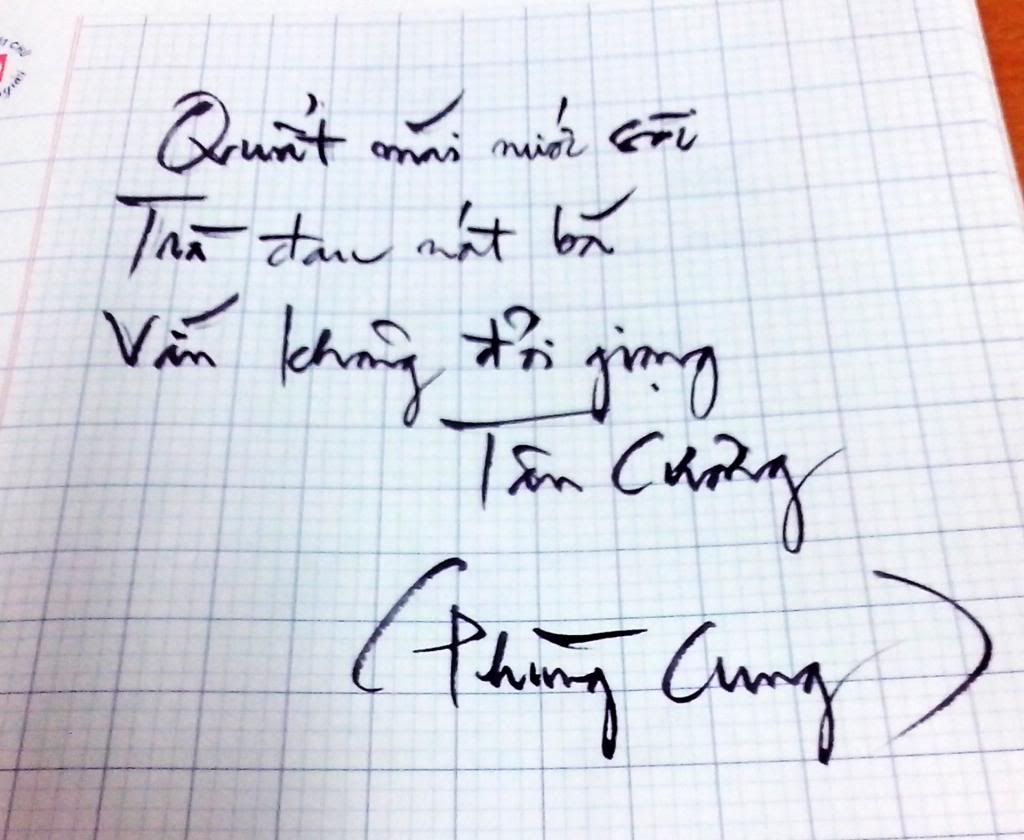 Quất mãi nước sôi
Trà đau nát bã
Vẫn không đổi giọng
Tân Cương
(Phùng Cung)